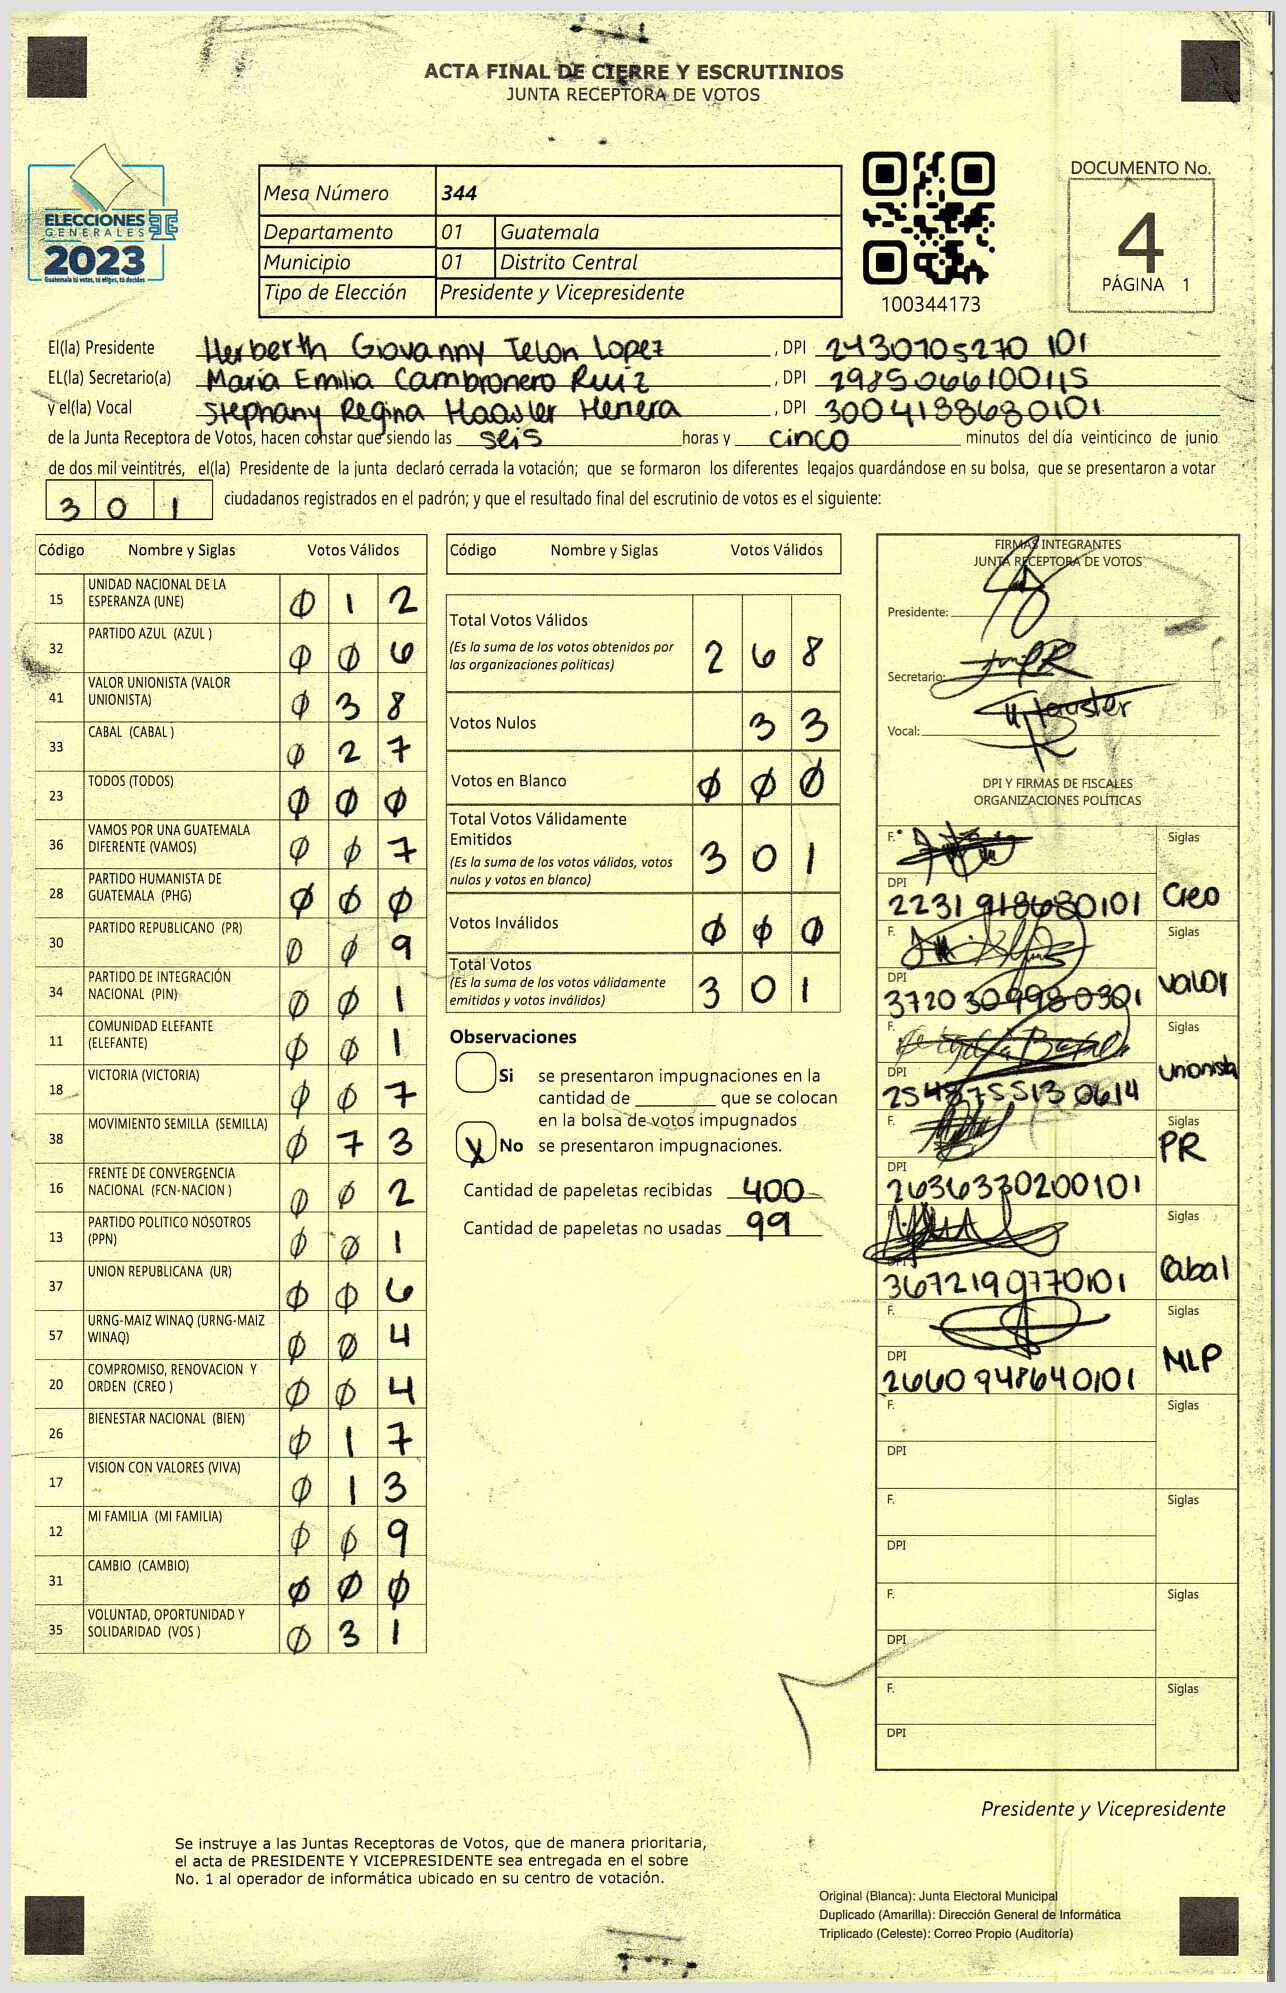 ACTA FINAL DE CIERRE Y ESCRUTINIOS
JUNTA RECEPTORA DE VOTOS
ELECCIONES
GENERALES
2023
Guatemala tú votas, tú eliges, tú decides
Mesa Número 344
Departamento 01 Guatemala
Municipio 01 Distrito Central
Tipo de Elección Presidente y Vicepresidente
100344173
DOCUMENTO No.
4
PÁGINA 1
El(la) Presidente Herberth Giovanny Telon Lopez , DPI 2430705270 101
EL(la) Secretario(a) Maria Emilia Cambronero Ruiz , DPI 2985066100115
y el(la) Vocal Stephany Regina Herrera , DPI 3004188680101
de la Junta Receptora de Votos, hacen constar que siendo las seis horas y cinco minutos del día veinticinco de junio
de dos mil veintitrés, el(la) Presidente de la junta declaró cerrada la votación; que se formaron los diferentes legajos guardándose en su bolsa, que se presentaron a votar
301 ciudadanos registrados en el padrón; y que el resultado final del escrutinio de votos es el siguiente:
Código Nombre y Siglas Votos Válidos
15 UNIDAD NACIONAL DE LA ESPERANZA (UNE) 0 1 2
32 PARTIDO AZUL (AZUL ) 0 0 6
41 VALOR UNIONISTA (VALOR UNIONISTA) 0 3 8
33 CABAL (CABAL ) 0 2 7
23 TODOS (TODOS) 0 0 0
36 VAMOS POR UNA GUATEMALA DIFERENTE (VAMOS) 0 0 7
28 PARTIDO HUMANISTA DE GUATEMALA (PHG) 0 0 0
30 PARTIDO REPUBLICANO (PR) 0 0 9
34 PARTIDO DE INTEGRACIÓN NACIONAL (PIN) 0 0 1
11 COMUNIDAD ELEFANTE (ELEFANTE) 0 0 1
18 VICTORIA (VICTORIA) 0 0 7
38 MOVIMIENTO SEMILLA (SEMILLA) 0 7 3
16 FRENTE DE CONVERGENCIA NACIONAL (FCN-NACION ) 0 0 2
13 PARTIDO POLITICO NOSOTROS (PPN) 0 0 1
37 UNION REPUBLICANA (UR) 0 0 6
57 URNG-MAIZ WINAQ (URNG-MAIZ WINAQ) 0 0 4
20 COMPROMISO, RENOVACION Y ORDEN (CREO ) 0 0 4
26 BIENESTAR NACIONAL (BIEN) 0 1 7
17 VISION CON VALORES (VIVA) 0 1 3
12 MI FAMILIA (MI FAMILIA) 0 0 9
31 CAMBIO (CAMBIO) 0 0 0
35 VOLUNTAD, OPORTUNIDAD Y SOLIDARIDAD (VOS ) 0 3 1
Código Nombre y Siglas Votos Válidos
Total Votos Válidos 2 6 8
(Es la suma de los votos obtenidos por
las organizaciones políticas)
Votos Nulos 3 3
Votos en Blanco 0 0 0
Total Votos Válidamente
Emitidos 3 0 1
(Es la suma de los votos válidos, votos
nulos y votos en blanco)
Votos Inválidos 0 0 0
Total Votos 3 0 1
(Es la suma de los votos válidamente
emitidos y votos inválidos)
Observaciones
Si se presentaron impugnaciones en la
cantidad de ________ que se colocan
en la bolsa de votos impugnados
X No se presentaron impugnaciones.
Cantidad de papeletas recibidas 400
Cantidad de papeletas no usadas 99
FIRMAS INTEGRANTES
JUNTA RECEPTORA DE VOTOS
Presidente:
Secretario:
Vocal:
DPI Y FIRMAS DE FISCALES
ORGANIZACIONES POLÍTICAS
F. Siglas
DPI 2231 918680101 Creo
F. Siglas
DPI 3720 309980301 Valor
F. Siglas
DPI 2548755130614 Unionista
F. Siglas
DPI 2636330200101 PR
F. Siglas
DPI 3672190770101 Cabal
F. Siglas
DPI 2660 948640101 MLP
F. Siglas
DPI
F. Siglas
DPI
F. Siglas
DPI
F. Siglas
DPI
Presidente y Vicepresidente
Se instruye a las Juntas Receptoras de Votos, que de manera prioritaria,
el acta de PRESIDENTE Y VICEPRESIDENTE sea entregada en el sobre
No. 1 al operador de informática ubicado en su centro de votación.
Original (Blanca): Junta Electoral Municipal
Duplicado (Amarilla): Dirección General de Informática
Triplicado (Celeste): Correo Propio (Auditoría)